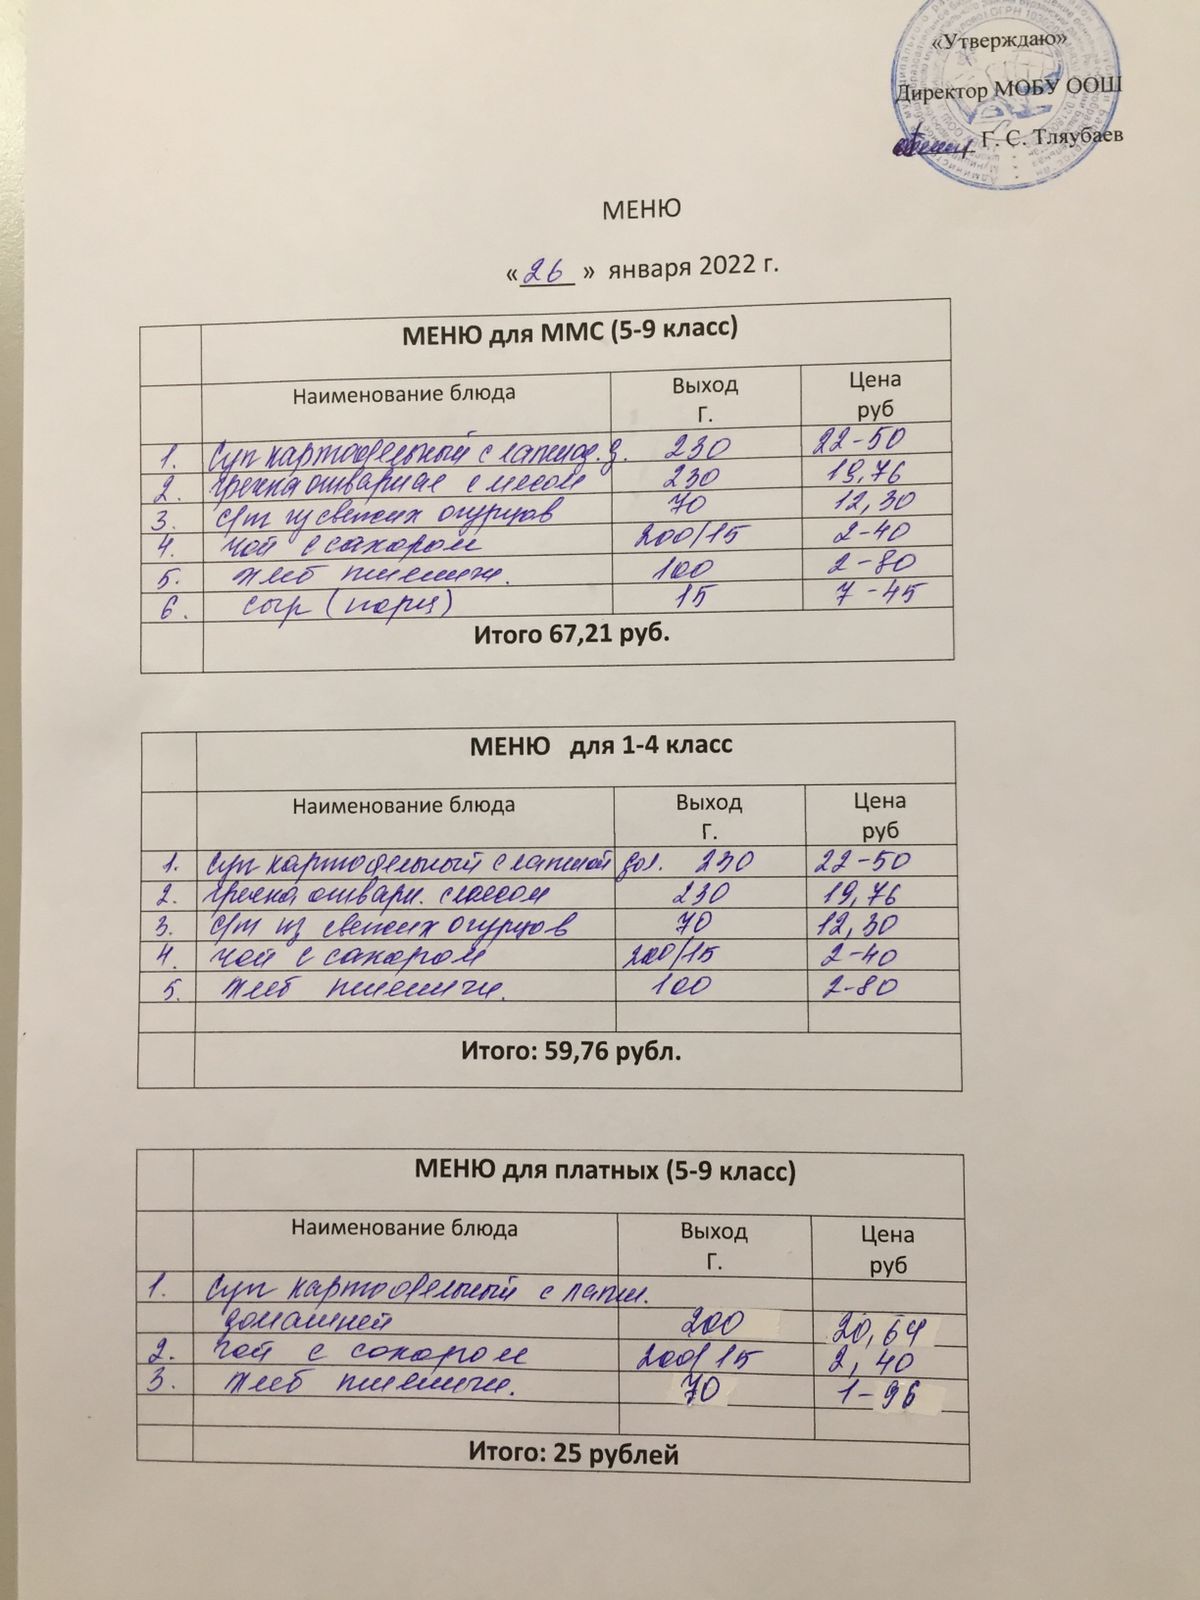 «Утверждаю»
Директор МОБУ ООШ
Г. С. Тляубаев
МЕНЮ
« 26 » января 2022 г.
МЕНЮ для ММС (5-9 класс)
Наименование блюда Выход Г. Цена руб
1. Суп картофельный с лапшой д. 230 22-50
2. гречка отварная с мясом 230 19,76
3. с/т из свежих огурцов 70 12,30
4. чай с сахаром 200/15 2-40
5. хлеб пшеничн. 100 2-80
6. сыр (порц) 15 7-45
Итого 67,21 руб.
МЕНЮ для 1-4 класс
Наименование блюда Выход Г. Цена руб
1. Суп картофельный с лапшой дом. 230 22-50
2. гречка отварн. с мясом 230 19,76
3. с/т из свежих огурцов 70 12,30
4. чай с сахаром 200/15 2-40
5. хлеб пшеничн. 100 2-80
Итого: 59,76 рубл.
МЕНЮ для платных (5-9 класс)
Наименование блюда Выход Г. Цена руб
1. Суп картофельный с лапш.
домашней 200 20,64
2. чай с сахаром 200/15 2,40
3. хлеб пшеничн. 70 1-96
Итого: 25 рублей